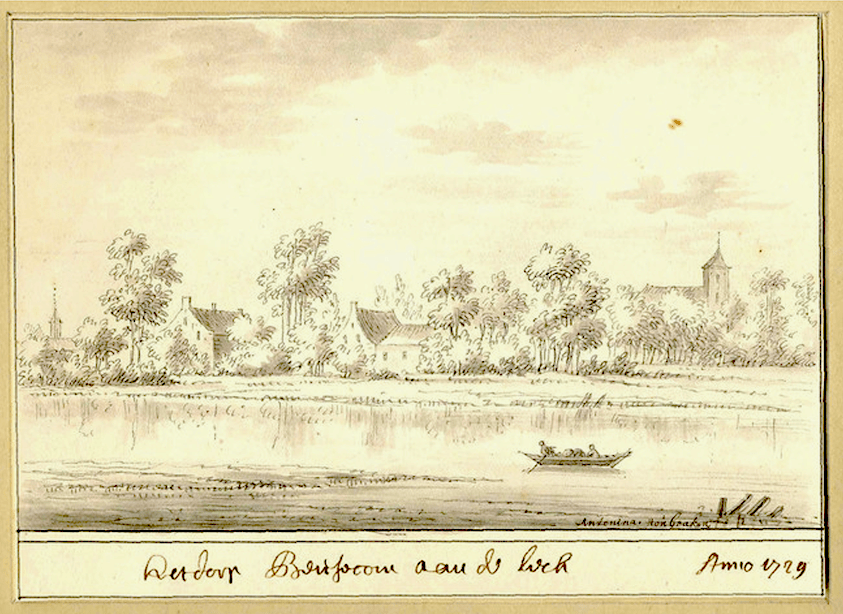 Antonina. houbraken
Het dorp Beusecom aan de leck Anno 1729